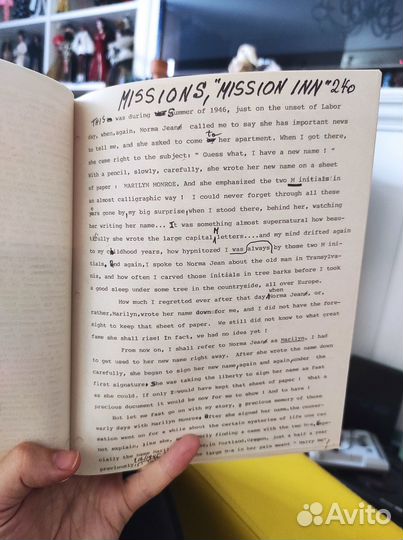 MISSIONS, "MISSION INN" 240
THIS was during Summer of 1946, just on the unset of Labor
day, when, again, Norma Jeane called me to say she has important news
to tell me, and she asked to come to her apartment. When I got there,
she came right to the subject: " Guess what, I have a new name ! "
With a pencil, slowly, carefully, she wrote her new name on a sheet
of paper : MARILYN MONROE. And she emphasized the two M initials in
an almost calligraphic way ! I could never forget through all these
years gone by, my big surprise, when I stood there, behind her, watching
her writing her name... It was something almost supernatural how beau-
tifully she wrote the large capital M letters.... and my mind drifted again
to my childhood years, how hypnotized I was always by those two M ini-
tials. And again, I spoke to Norma Jean about the old man in Transylva-
nia, and how often I carved those initials in tree barks before I took
a good sleep under some tree in the countryside, all over Europe.
How much I regretted ever after that day, when Norma Jeane, or,
rather, Marilyn, wrote her name down for me, and I did not have the fore-
sight to keep that sheet of paper. We still did not know to what great
fame she shall rise! In fact, we had no idea yet !
From now on, I shall refer to Norma Jeane as Marilyn. I had
to get used to her new name right away. After she wrote the name down
carefully, she began to sign her new name, again and again, under the
first signature. She was taking the liberty to sign her name as fast
as she could. If only I would have kept that sheet of paper ! What a
precious document it would be now for me to show ! And to have !
But let me fast go on with my story, a precious memory of those
early days with Marilyn Monroe. After she signed her name, the conver-
sation went on for a while about the certain mysteries of life one can
not explain, like she, finding a name with the two M-s, Espe-
cially the name in Portland, Oregon, just a half a year
previously large M-s in her palm meant " Marry me"!
Avito